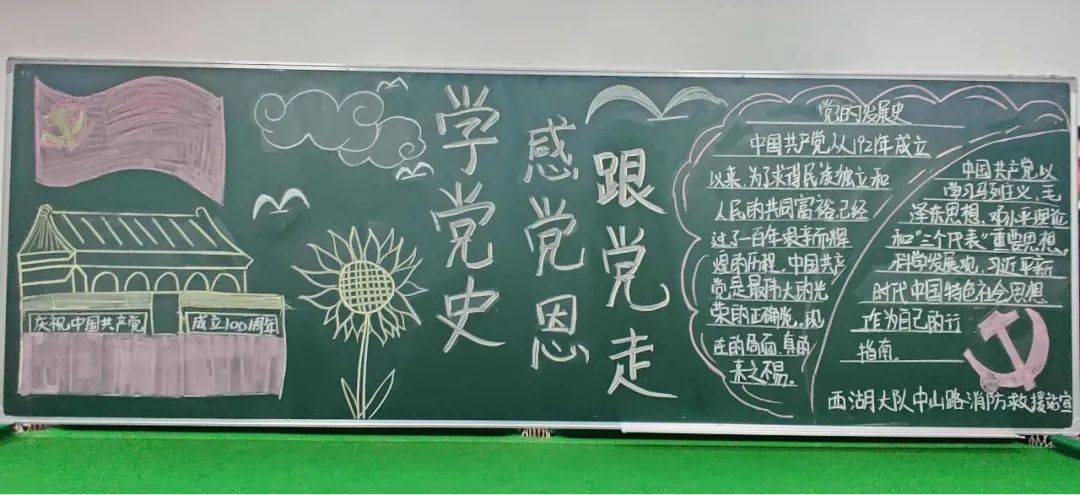 庆祝中国共产党
成立100周年
学党史
感党恩
跟党走
党的发展史
中国共产党从1921年成立
以来,为了求得民族独立和
人民的共同富裕已经
过了一百年艰辛而辉
煌的历程,中国共产
党是最伟大的光
荣的正确党。现
在的局面,真的
来之不易。
中国共产党以
学习马列主义,毛
泽东思想,邓小平理论
和“三个代表”重要思想,
科学发展观,习近平新
时代中国特色社会思想
作为自己的行
指南。
西湖大队中山路消防救援站宣